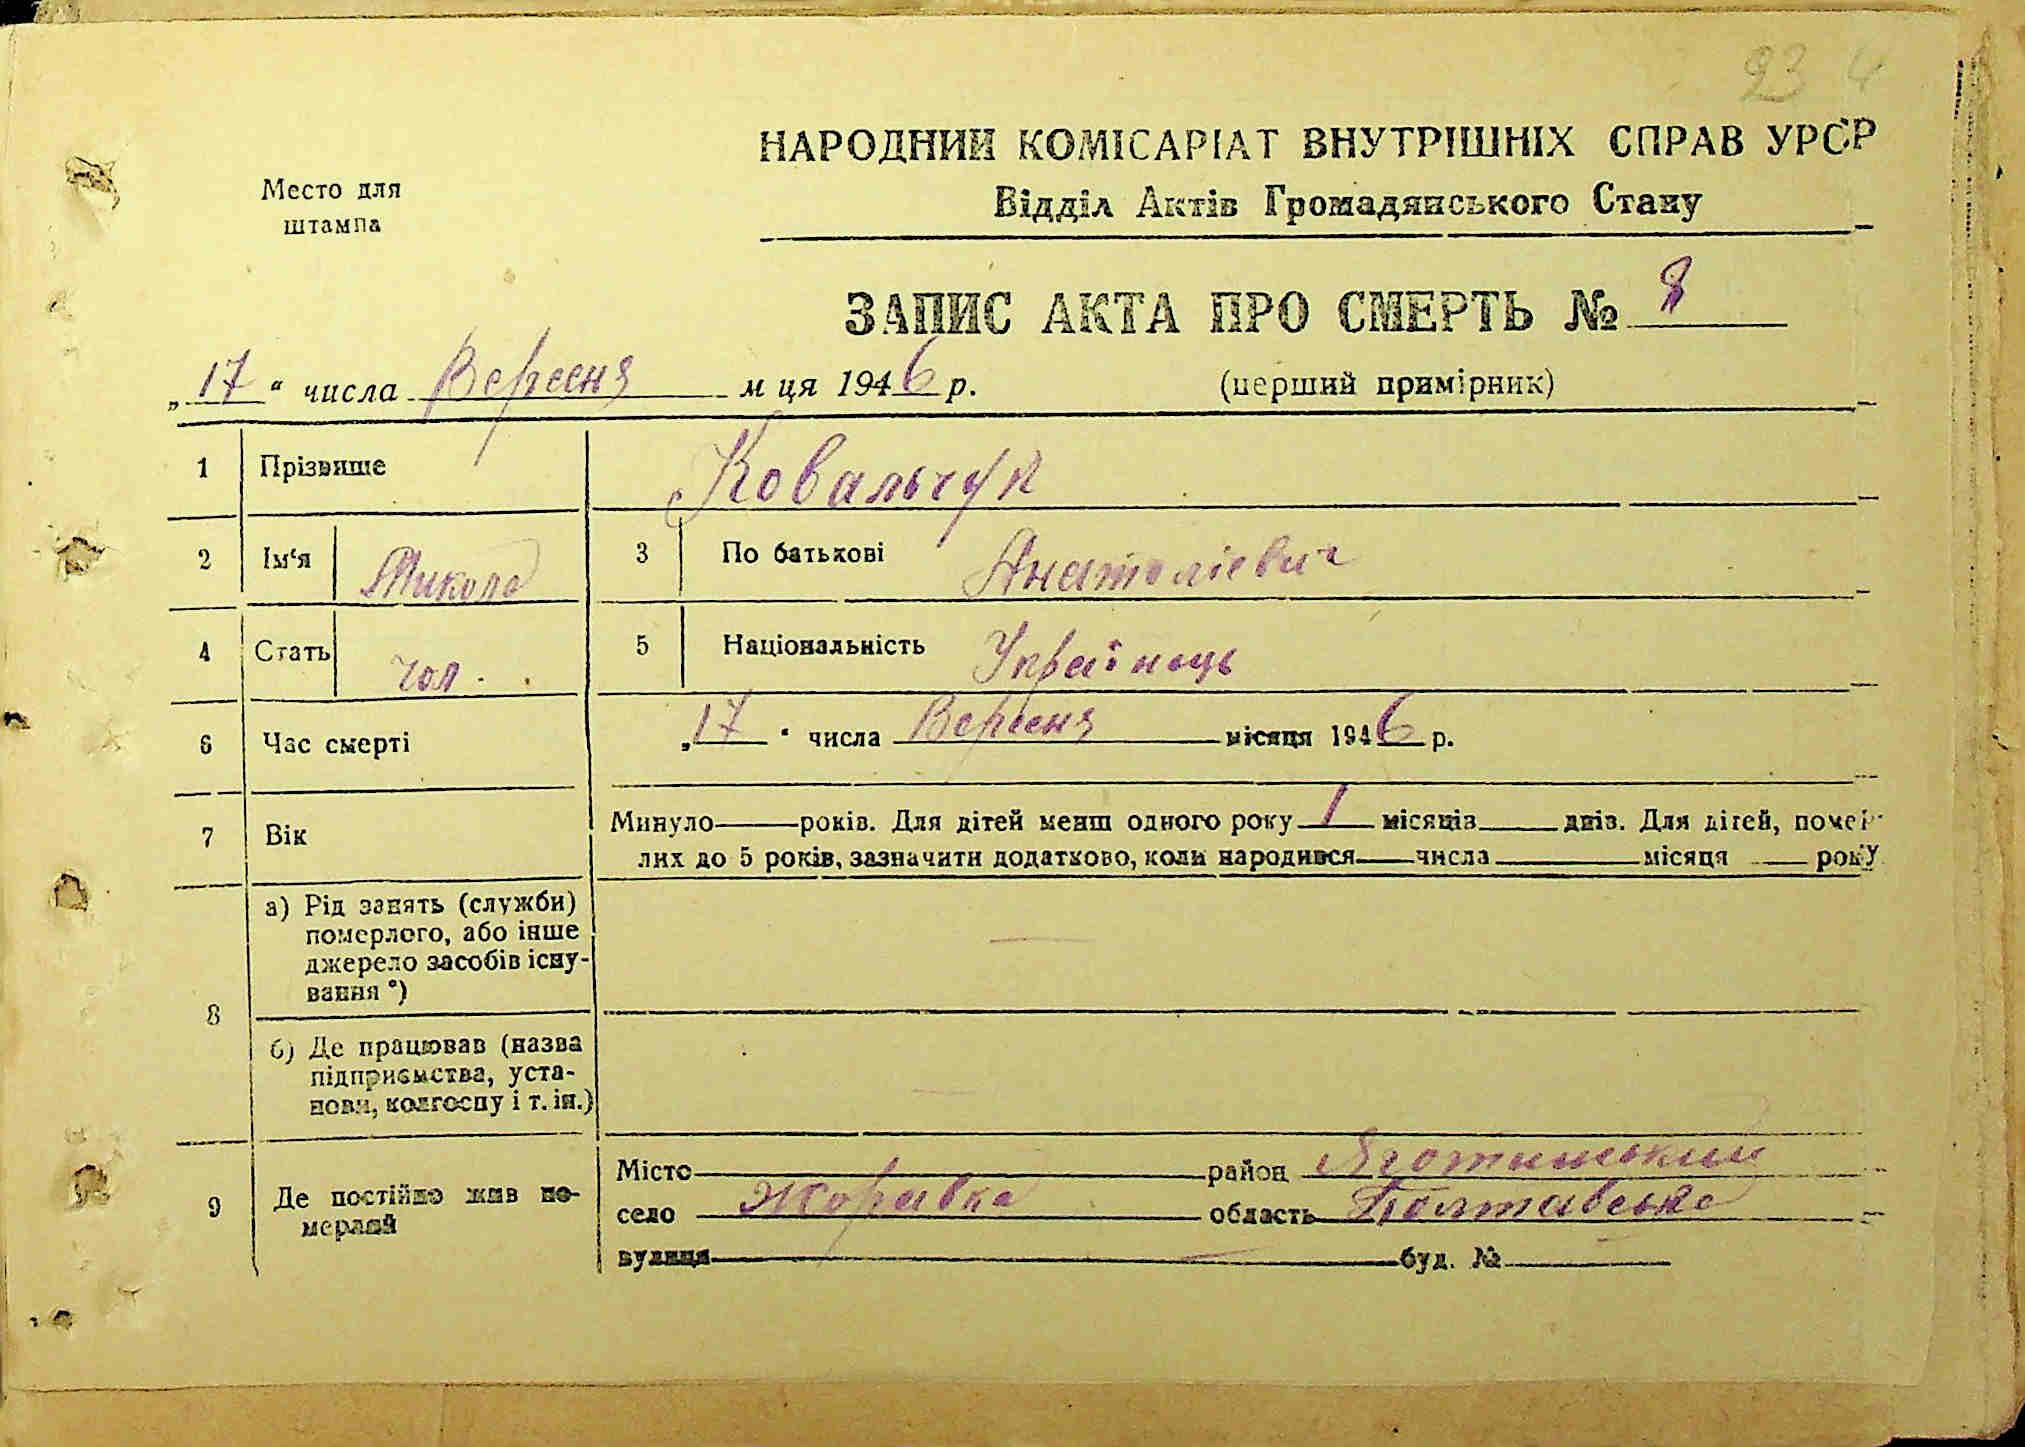 23 4
НАРОДНИЙ КОМІСАРІАТ ВНУТРІШНІХ СПРАВ УРСР
Место для
штампа
Відділ Актів Громадянського Стану
ЗАПИС АКТА ПРО СМЕРТЬ № 8
„ 17 “ числа Вересня м ця 1946 р. (перший примірник)
1 Прізвище Ковальчук
2 Ім‘я Микола 3 По батькові Анатолієвич
4 Стать чол. 5 Національність Українець
6 Час смерті „ 17 “ числа Вересня місяця 1946 р.
7 Вік Минуло років. Для дітей менш одного року 1 місяців днів. Для дітей, помер-
лих до 5 років, зазначити додатково, коли народився числа місяця року
8 а) Рід занять (служби)
померлого, або інше
джерело засобів існу-
вання *)
б) Де працював (назва
підприємства, уста-
нови, колгоспу і т. ін.)
9 Де постійно жив по-
мерлий
Місто район Яготинський
село Жоравка область Полтавська
вулиця буд. №